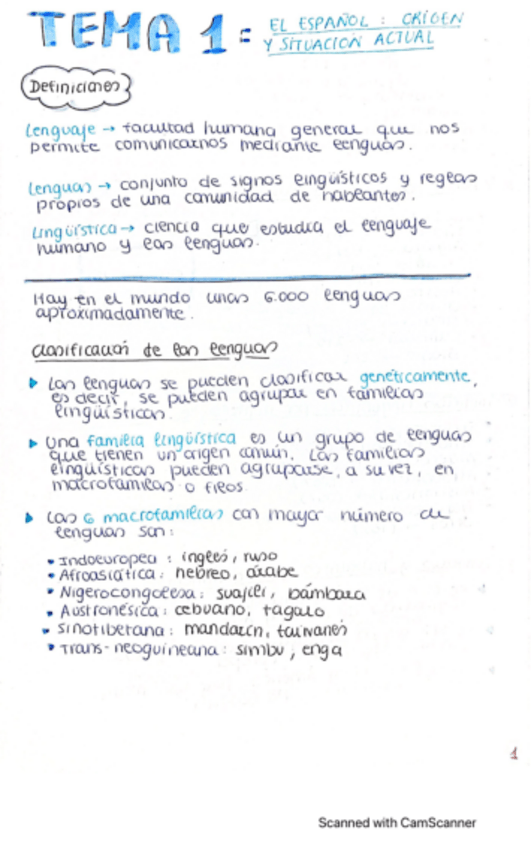 TEMA 1: EL ESPAÑOL: ORIGEN
Y SITUACIÓN ACTUAL
Definiciones
Lenguaje → facultad humana general que nos
permite comunicarnos mediante lenguas.
Lenguas → conjunto de signos lingüísticos y reglas
propios de una comunidad de hablantes.
Lingüística → ciencia que estudia el lenguaje
humano y las lenguas.
Hay en el mundo unas 6.000 lenguas
aproximadamente.
Clasificación de las lenguas
▸ Las lenguas se pueden clasificar genéticamente,
es decir, se pueden agrupar en familias
lingüísticas.
▸ Una familia lingüística es un grupo de lenguas
que tienen un origen común. Las familias
lingüísticas pueden agruparse, a su vez, en
macrofamilias o filos.
▸ Las 6 macrofamilias con mayor número de
lenguas son:
• Indoeuropea: inglés, ruso
• Afroasiática: hebreo, árabe
• Nigerocongolesa: suajili, bámbara
• Austronésica: cebuano, tagalo
• Sinotibetana: mandarín, taiwanés
• Trans-neoguineana: simbu, enga
1
Scanned with CamScanner